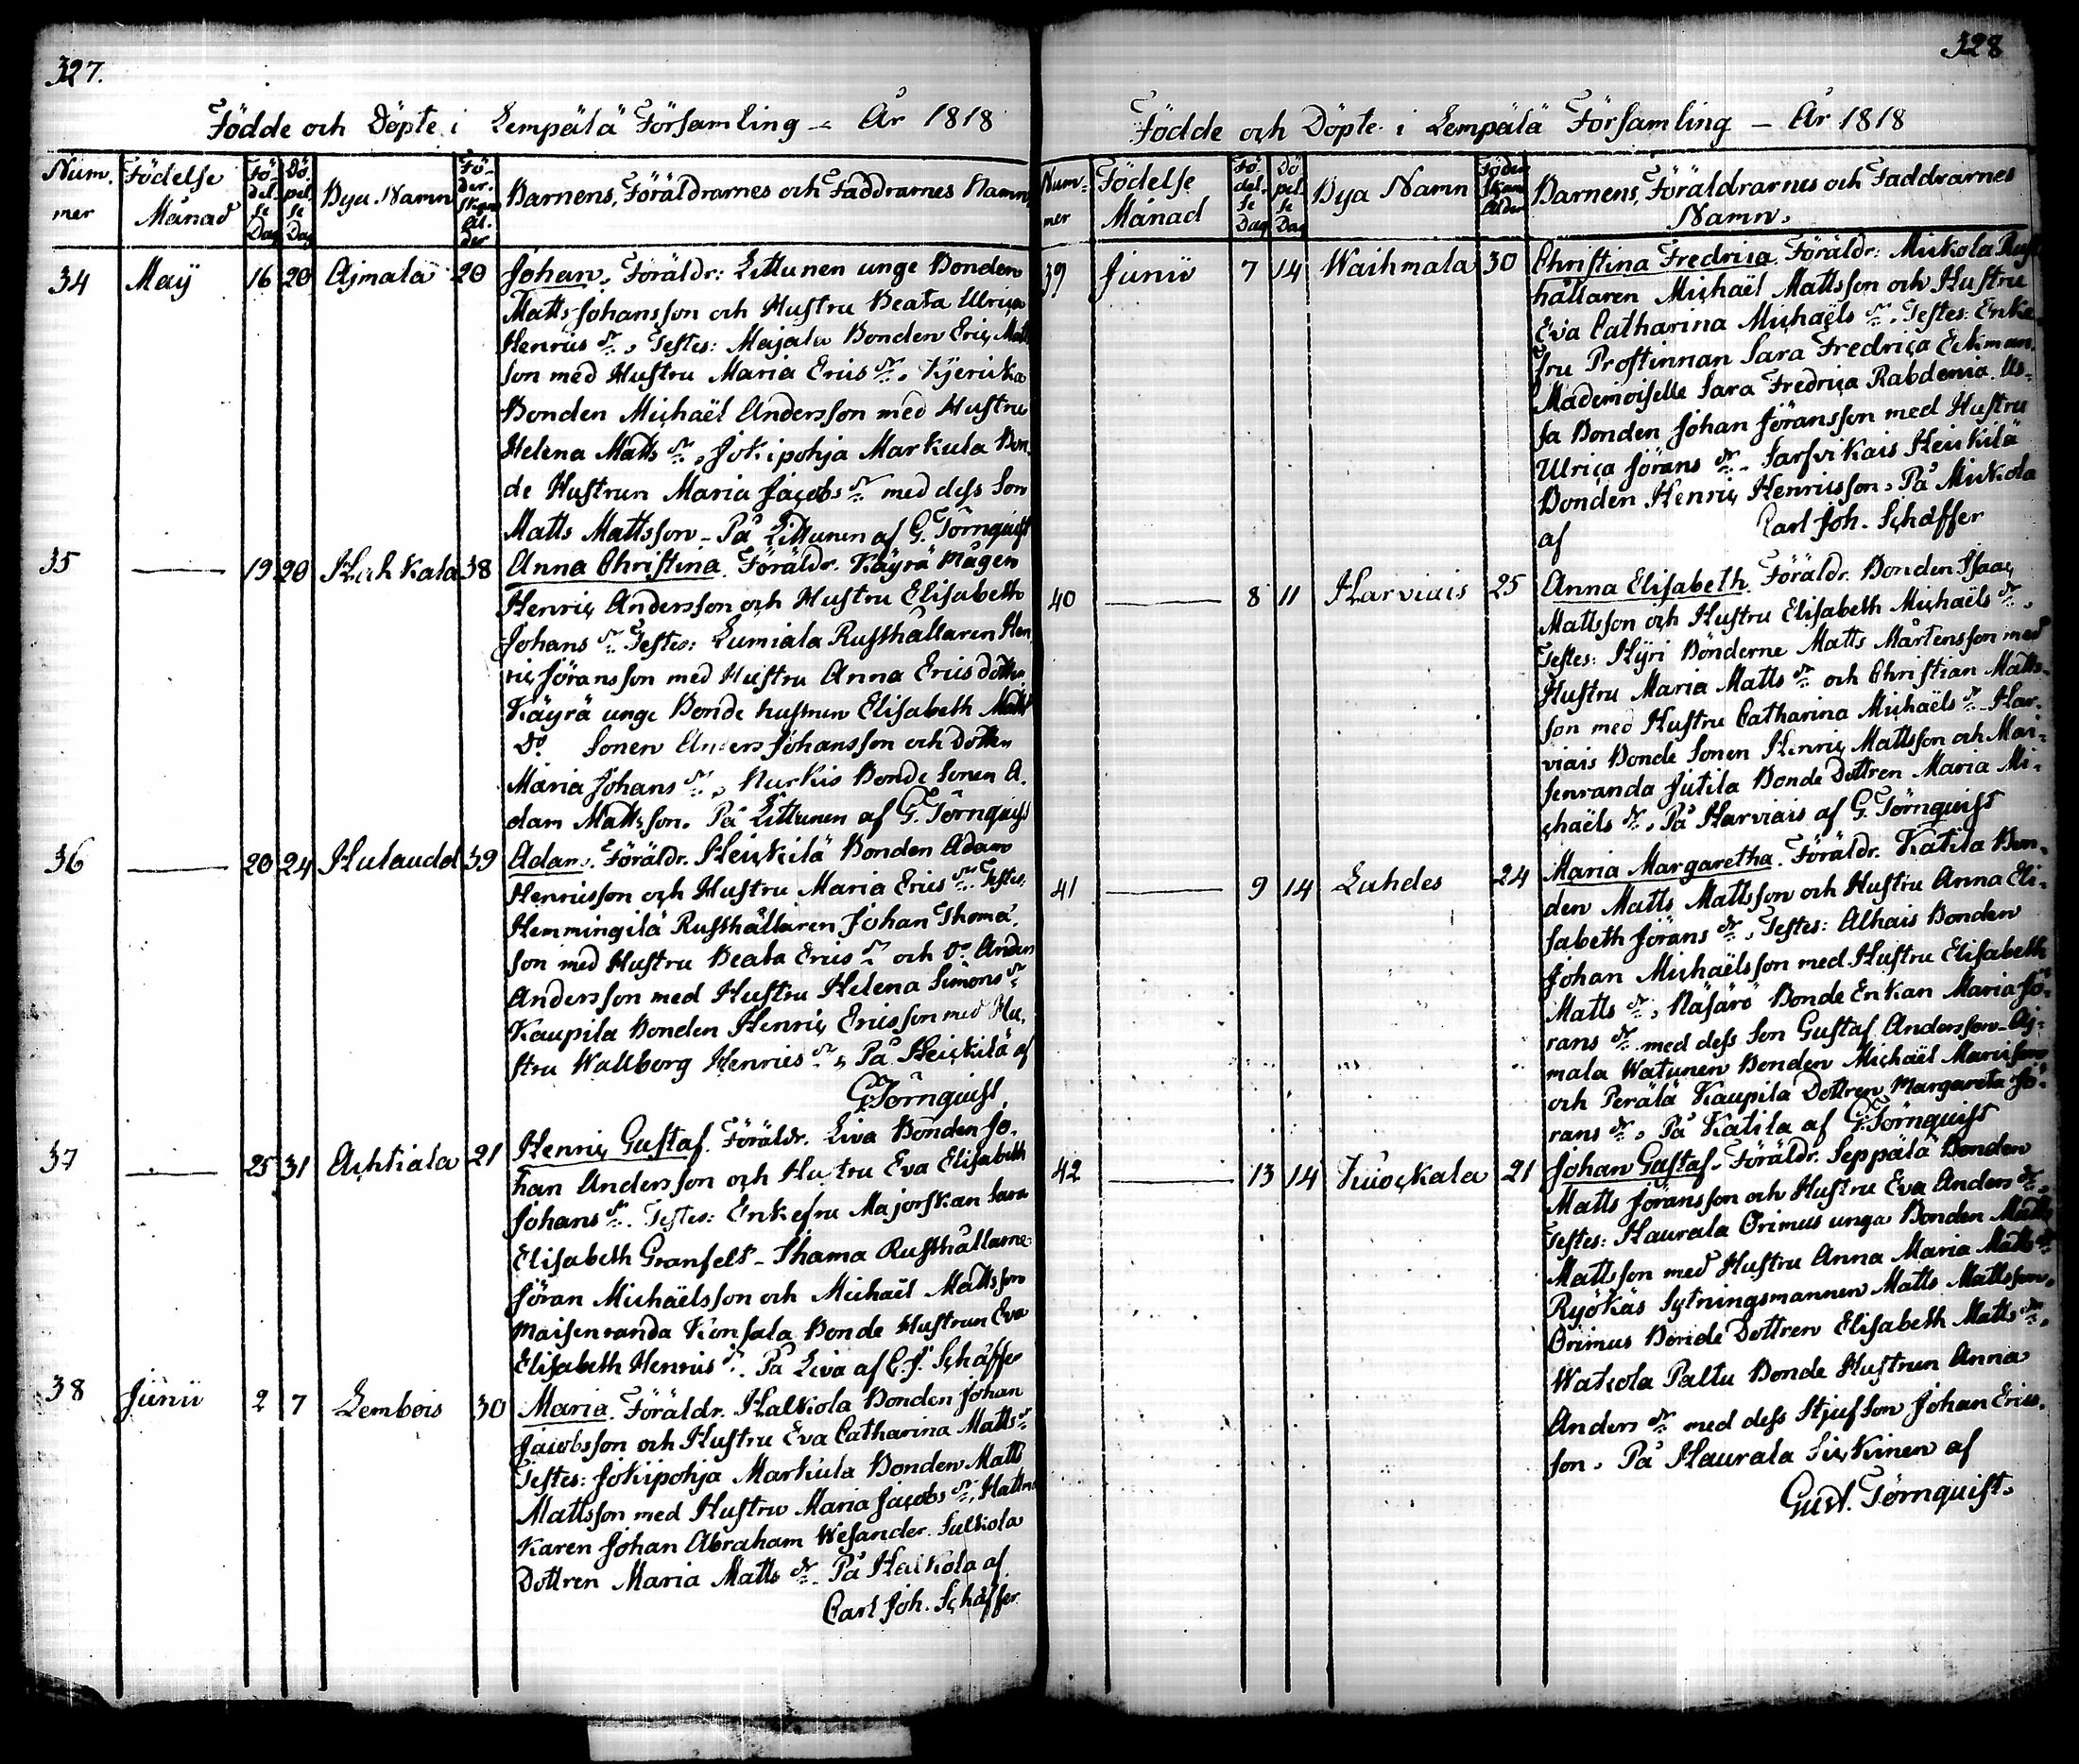 327.
Födde och Döpte i Lempälä Församling - År 1818
Num. mer
Födelse Månad
Fö- del- se Dag
Dö- pel- se Dag
Bya Namn
Fö- der- skans Ål- der
Barnens, Föräldrarnes och Faddrarnes Namn
34 Maÿ 16 20 Ajmala 20 Johan. Föräldr: Littunen unge Bonden
Matts Johansson och Hustru Beata Ulrica
Henrics dr. Testes: Majala Bonden Eric Matts
son med Hustru Maria Erics dr. Kjericka
Bonden Michaël Andersson med Hustru
Helena Matts dr. Jokipohja Markula Bon
de Hustrun Maria Jacobs dr med dess Son
Matts Mattsson - På Littunen af G. Törnquist
35 — 19 20 Hahkala 38 Anna Christina. Föräldr. Käyrä Mågen
Henric Andersson och Hustru Elisabeth
Johans dr. Testes: Lumiala Rusthållaren Hen
ric Jöransson med Hustru Anna Erics dotter
Käyrä unge Bonde hustrun Elisabeth Matts
Do Sonen Anders Johansson och Dottren
Maria Johans dr. Nurkis Bonde Sonen A.
dam Mattsson. På Littunen af G. Törnquist
36 — 20 24 Hulaudd 39 Adam. Föräldr. Heickilä Bonden Adam
Henricsson och Hustru Maria Erics dr. Testes
Hemmingilä Rusthållaren Johan Thoma
son med Hustru Beata Erics dr och Do Anders
Andersson med Hustru Helena Simons dr
Kaupila Bonden Henric Ericsson med Hu
stru Wallborg Henrics dr. På Heickilä af
G. Törnquist
37 — 25 31 Achtiala 21 Henric Gustaf. Föräldr. Liva Bonden Jo.
han Andersson och Hustru Eva Elisabeth
Johans dr. Testes: Enkefru Majorskan Sara
Elisabeth Granfelt - Thama Rusthållarne
Jöran Michaëlsson och Michaël Mattsson
Maisenranda Konsala Bonde Hustrun Eva
Elisabeth Henrics dr. På Liva af C. J. Schäffer
38 Junii 2 7 Lembois 30 Maria. Föräldr. Halkola Bonden Johan
Jacobsson och Hustru Eva Catharina Matts dr
Testes: Jokipohja Markula Bonden Matts
Mattsson med Hustru Maria Jacobs dr. Hattma
karen Johan Abraham Wesander. Sulkola
Dottren Maria Matts dr - På Halkola af
Carl Joh. Schäffer
328
Födde och Döpte i Lempälä Församling - År 1818
Num- mer
Födelse Månad
Fö- del- se Dag
Dö- pel- se Dag
Bya Namn
Föder- skans Ålder
Barnens, Föräldrarnes och Faddrarnes Namn.
39 Junii 7 14 Waihmala 30 Christina Fredrica. Föräldr: Mickola Rust
hållaren Michaël Mattsson och Hustru
Eva Catharina Michaëls dr. Testes: Enke
fru Prostinnan Sara Fredrica Eckman.
Mademoiselle Sara Fredrica Rabdenia.
sa Bonden Johan Jöransson med Hustru
Ulrica Jörans dr. Sarfvikais Heickilä
Bonden Henric Henricsson. På Mickola
af Carl Joh. Schäffer
40 — 8 11 Harviais 25 Anna Elisabeth. Föräldr. Bonden Isaac
Mattsson och Hustru Elisabeth Michaëls dr.
Testes: Hyri Bönderne Matts Mårtensson med
Hustru Maria Matts dr och Christian Matts-
son med Hustru Catharina Michaëls dr Har-
viais Bonde Sonen Henric Mattsson och Mai-
senranda Jutila Bonde Dottren Maria Mi-
chaëls dr. På Harviais af G. Törnquist
41 — 9 14 Lahdes 24 Maria Margaretha. Föräldr. Katila Bon-
den Matts Mattsson och Hustru Anna Eli-
sabeth Jörans dr. Testes: Alhais Bonden
Johan Michaëlsson med Hustru Elisabeth
Matts dr. Näsärö Bonde Enkan Maria Jö-
rans dr med dess Son Gustaf Andersson - Aj-
mala Watunen Bonden Michaël Marcisson
och Perälä Kaupila Dottren Margareta Jö-
rans dr. På Katila af G. Törnquist
42 — 13 14 Kuockala 21 Johan Gustaf. Föräldr. Seppälä Bonden
Matts Jöransson och Hustru Eva Anders dr.
Testes: Haurala Orimus unga Bonden Matts
Mattsson med Hustru Anna Maria Matts dr
Ryökäs Sytningsmannen Matts Mattsson.
Orimus Bonde Dottren Elisabeth Matts dr.
Wakola Paltu Bonde Hustrun Anna
Anders dr med dess Stjufson Johan Erics.
son. På Haurala Sickinen af
Gust. Törnquist.